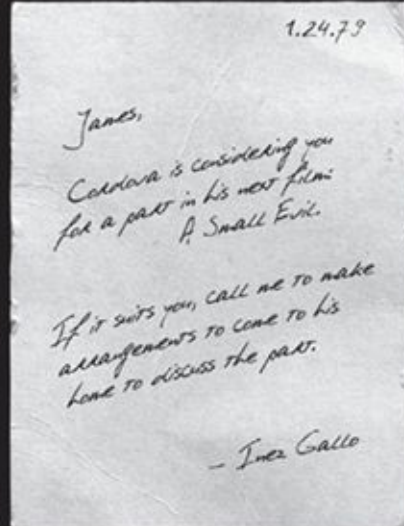 1.24.79
James,
Cordova is considering you
for a part in his next film:
A Small Evil.
If it suits you, call me to make
arrangements to come to his
home to discuss the part.
– Inez Gallo